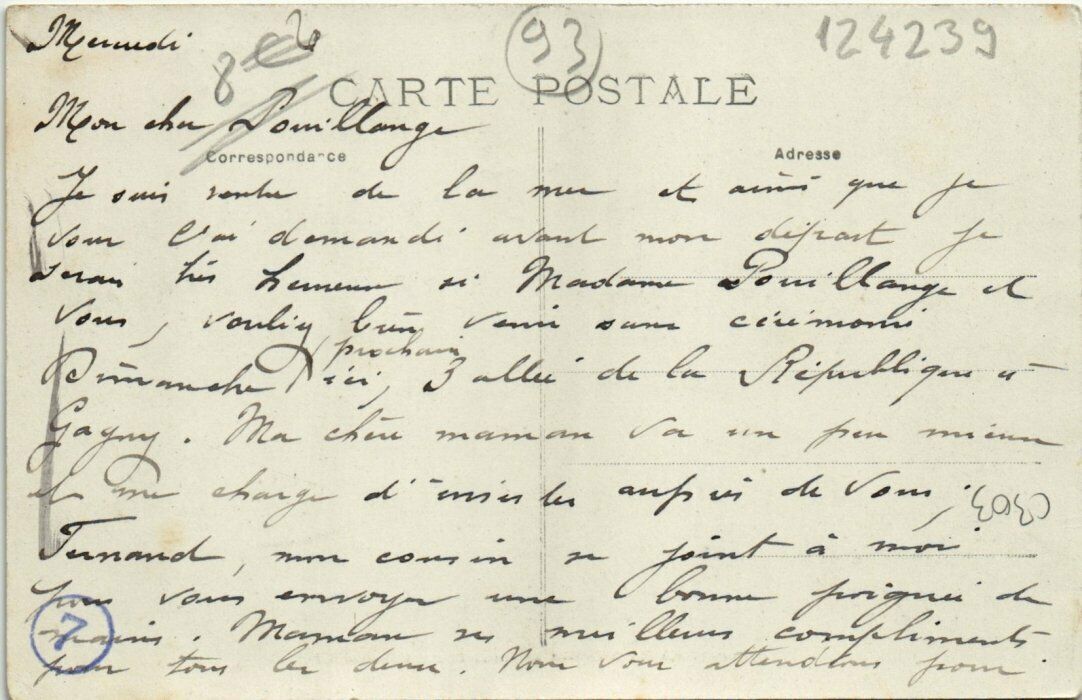 Mercredi
8
93
124239
CARTE POSTALE
Mon cher Pouillange
Correspondance
Adresse
Je suis rentré de la mer et ainsi que je
vous l'ai demandé avant mon départ je
serais très heureux si Madame Pouillange et
vous, vouliez bien venir sans cérémonie
prochain
Dimanche ici, 3 allée de la République à
Gagny. Ma chère maman va un peu mieux
et me charge d'insister auprès de vous,
Fernand, mon cousin se joint à moi
pour vous envoyer une bonne poignée de
mains. Maman ses meilleurs compliments
7
pour tous les deux. Nous vous attendons pour